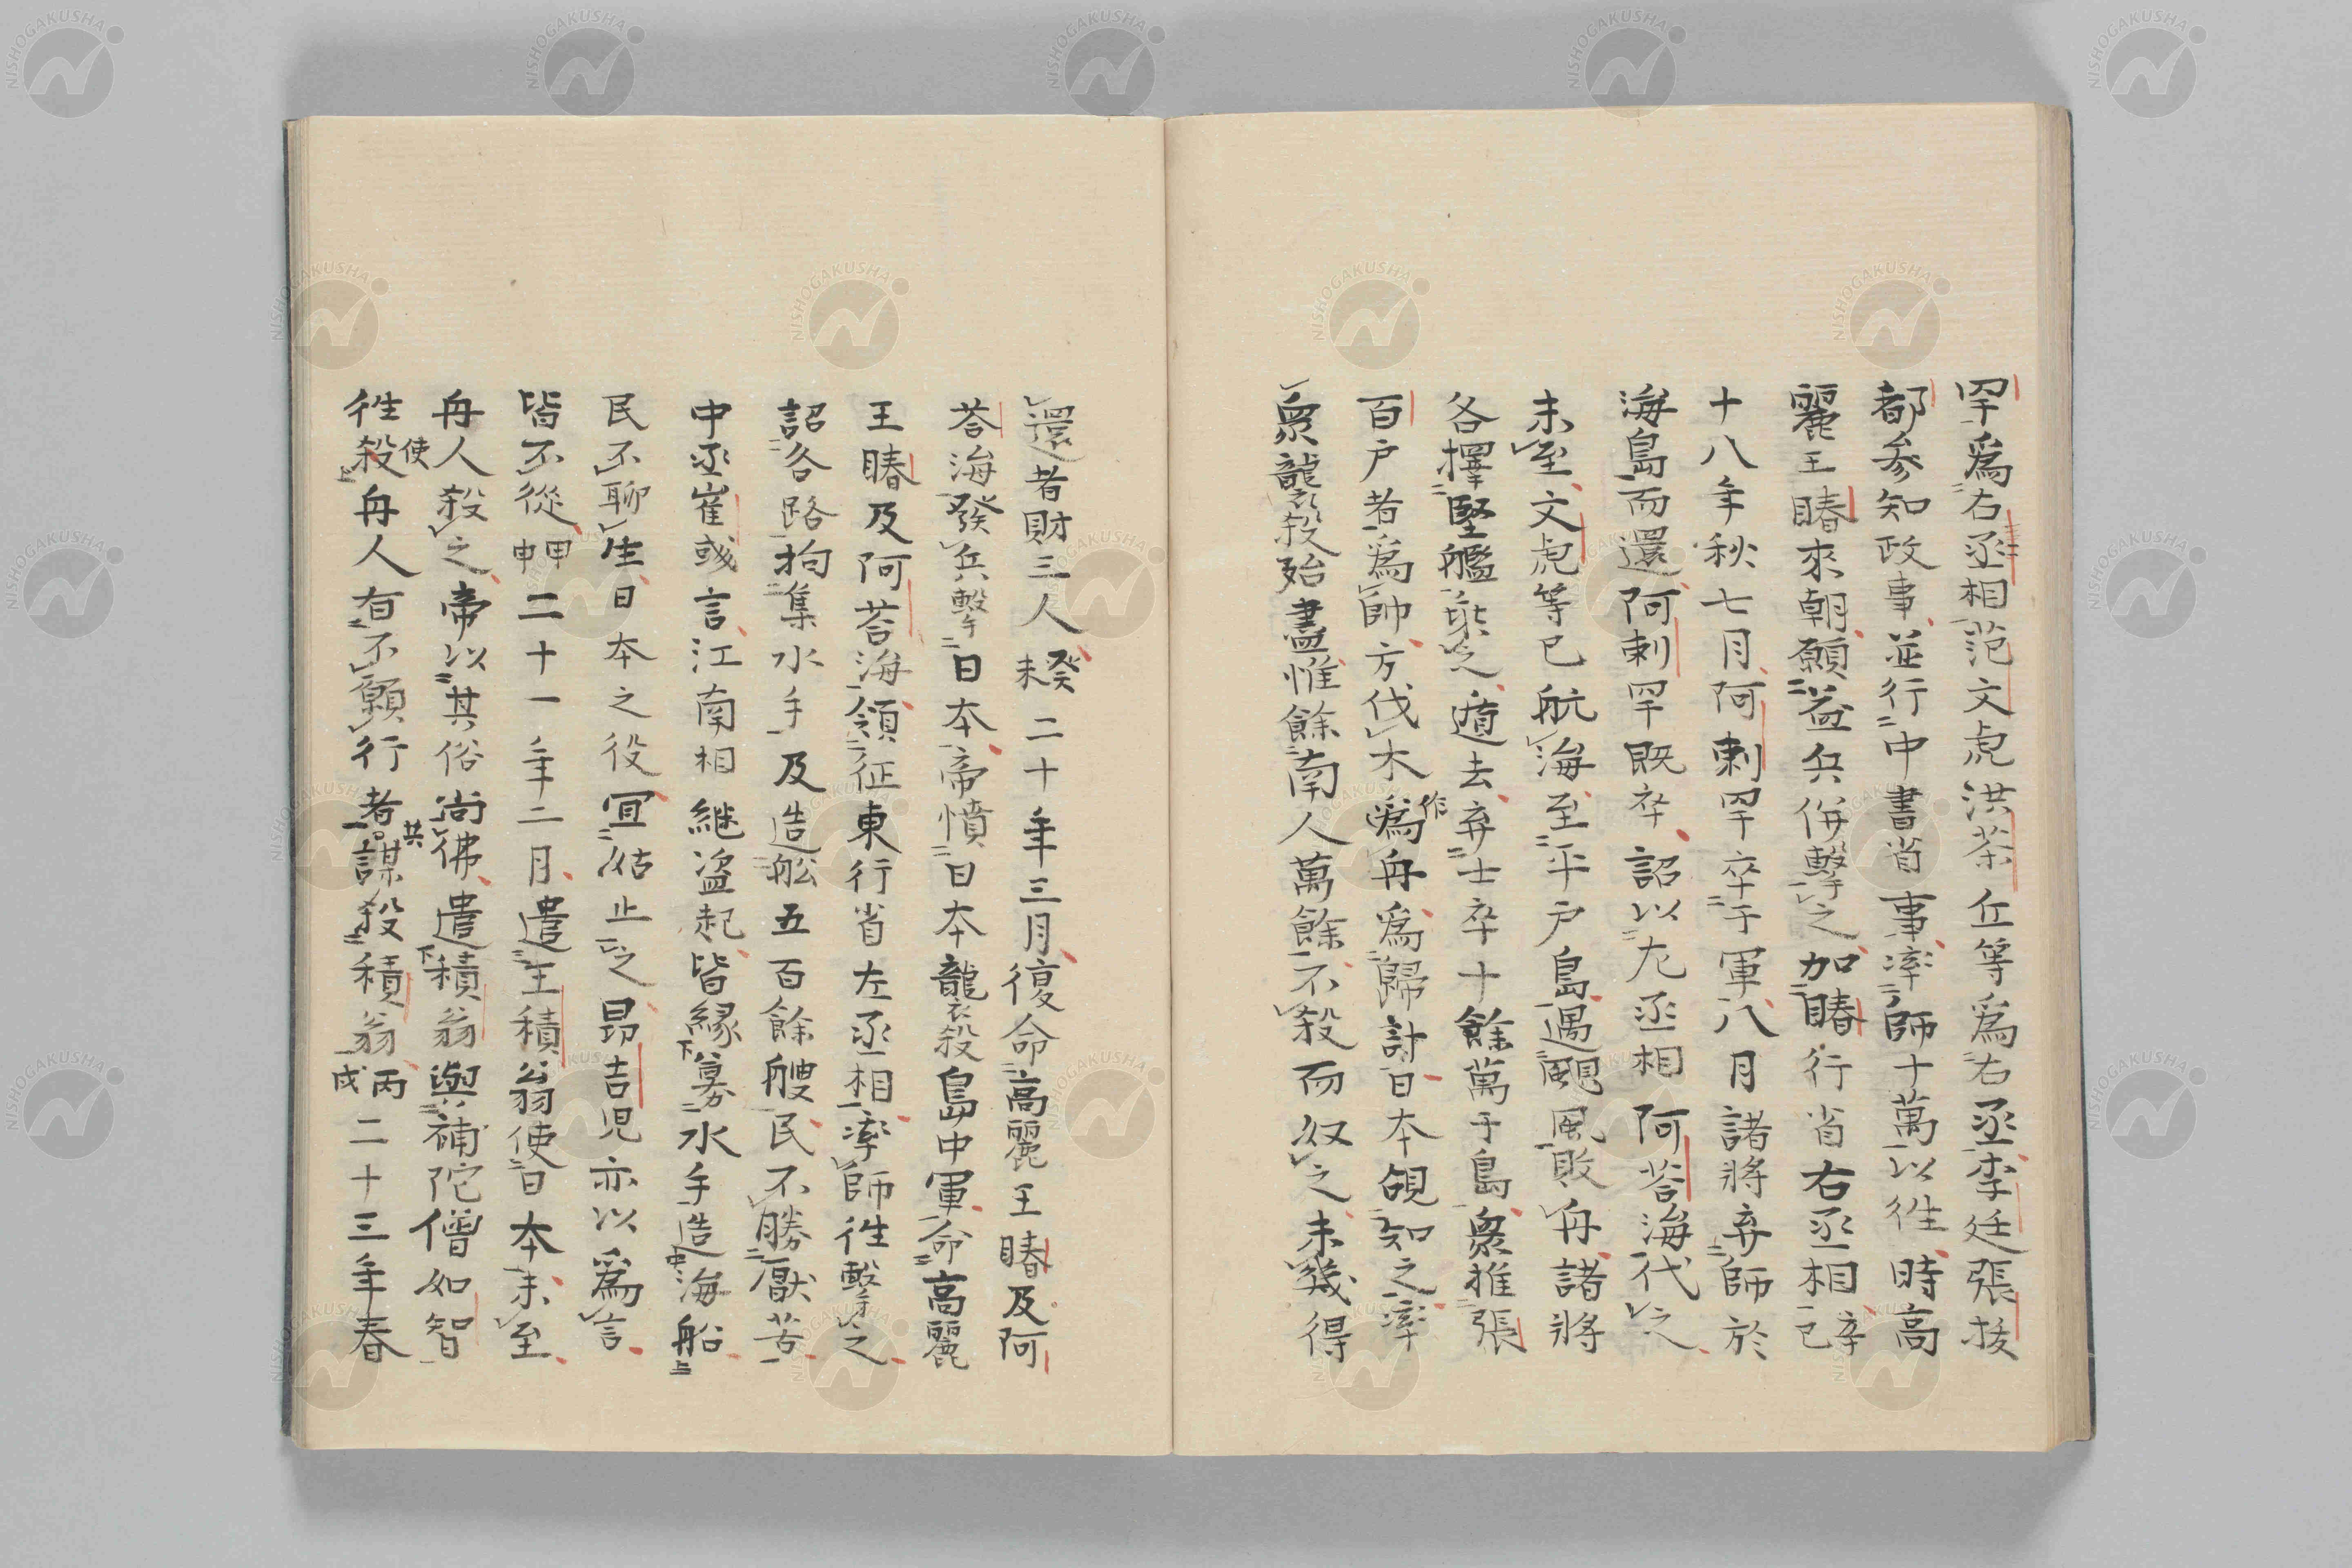 罕爲右丞相范文虎洪茶丘等爲右丞李廷張拔
都參知政事並行中書省事率師十萬以往時高
麗王賰來朝願益兵併擊之加賰行省右丞相辛巳
十八年秋七月阿剌罕卒于軍八月諸將棄師於
海島而還阿剌罕既卒詔以左丞相阿荅海代之
未至文虎等已航海至平戶島遇颶風敗舟諸將
各擇堅艦乘之遁去弃士卒十餘萬于島衆推張
百戶者爲帥方伐木爲作舟爲歸計日本覘知之率
衆襲殺殆盡惟餘南人萬餘不殺而奴之未幾得
還者財三人癸未二十年三月復命高麗王賰及阿
荅海發兵擊日本帝憤日本襲殺島中軍命高麗
王賰及阿荅海領征東行省左丞相率師往擊之
詔各路拘集水手及造舩五百餘艘民不勝厭苦
中丞崔彧言江南相継盗起皆縁募水手造海船
民不聊生日本之役冝姑止之昂吉児亦以爲言
皆不從甲申二十一年二月遣王積翁使日本未至
舟人殺之帝以其俗尚佛遣積翁與補陀僧如智
往使殺舟人有不願行者共謀殺積翁丙戌二十三年春
NISHOGAKUSHA